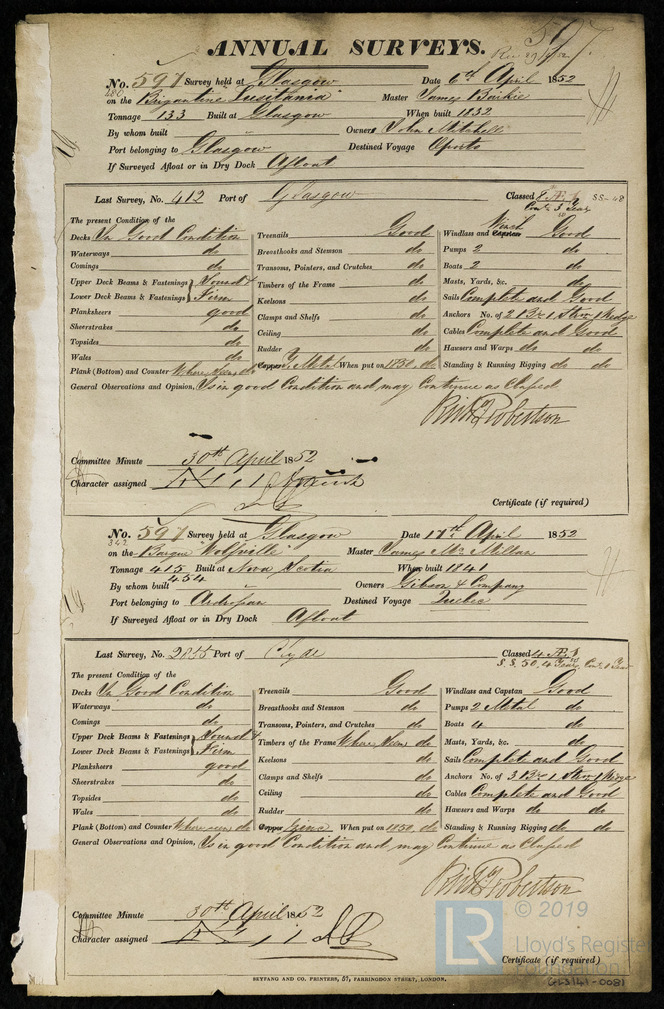 597.
ANNUAL SURVEYS.
No. 597 Survey held at Glasgow Date 6th April 1852
480
on the Brigantine "Lusitania" Master James Baikie
Tonnage 133 Built at Glasgow When built 1832
By whom built Owners John Mitchell
Port belonging to Glasgow Destined Voyage Oporto
If Surveyed Afloat or in Dry Dock Afloat
Last Survey, No. 412 Port of Glasgow Classed SS-48
Cont. 3 Years
The present Condition of the
Decks In Good Condition Treenails Good Windlass and Capstan Winch Good
Waterways do Breasthooks and Stemson do Pumps 2 do
Comings do Transoms, Pointers, and Crutches do Boats 2 do
Upper Deck Beams & Fastenings Sound & Timbers of the Frame do Masts, Yards, &c. do
Lower Deck Beams & Fastenings Firm Keelsons do Sails Complete and Good
Planksheers good Clamps and Shelfs do Anchors No. of 2 1 1 Kedge
Sheerstrakes do Ceiling do Cables Complete and Good
Topsides do Rudder do Hawsers and Warps do do
Wales do Copper Y. Metal When put on 1850. do Standing & Running Rigging do do
Plank (Bottom) and Counter Where seen do
General Observations and Opinion, Is in good Condition and may Continue as Classed
Robertson
Committee Minute 30th April 1852
Character assigned
Certificate (if required)
No. 597 Survey held at Glasgow Date 17th April 1852
342
on the Barque "Wolfville" Master James Mc Millan
Tonnage 415 Built at Nova Scotia When built 1841
454
By whom built Owners Gibson & Company
Port belonging to Ardrossan Destined Voyage Quebec
If Surveyed Afloat or in Dry Dock Afloat
Last Survey, No. 2855 Port of Clyde Classed 4 Æ 1
S.S. 50, 4 Years Cont. 1 Year
The present Condition of the
Decks In Good Condition Treenails Good Windlass and Capstan Good
Waterways do Breasthooks and Stemson do Pumps 2 Metal do
Comings do Transoms, Pointers, and Crutches do Boats 4 do
Upper Deck Beams & Fastenings Sound & Timbers of the Frame Where Seen do Masts, Yards, &c. do
Lower Deck Beams & Fastenings Firm Keelsons do Sails Complete and Good
Planksheers good Clamps and Shelfs do Anchors No. of 3 1 1 Kedge
Sheerstrakes do Ceiling do Cables Complete and Good
Topsides do Rudder do Hawsers and Warps do do
Wales do Copper Zinc When put on 1850. do Standing & Running Rigging do do
Plank (Bottom) and Counter Where seen do
General Observations and Opinion, Is in good Condition and may Continue as Classed
Robertson
Committee Minute 30th April 1852
Character assigned
Certificate (if required)
SEYFANG AND CO. PRINTERS, 57, FARRINGDON STREET, LONDON.
LR © 2019
Lloyd's Register
Foundation
GLS141-0081